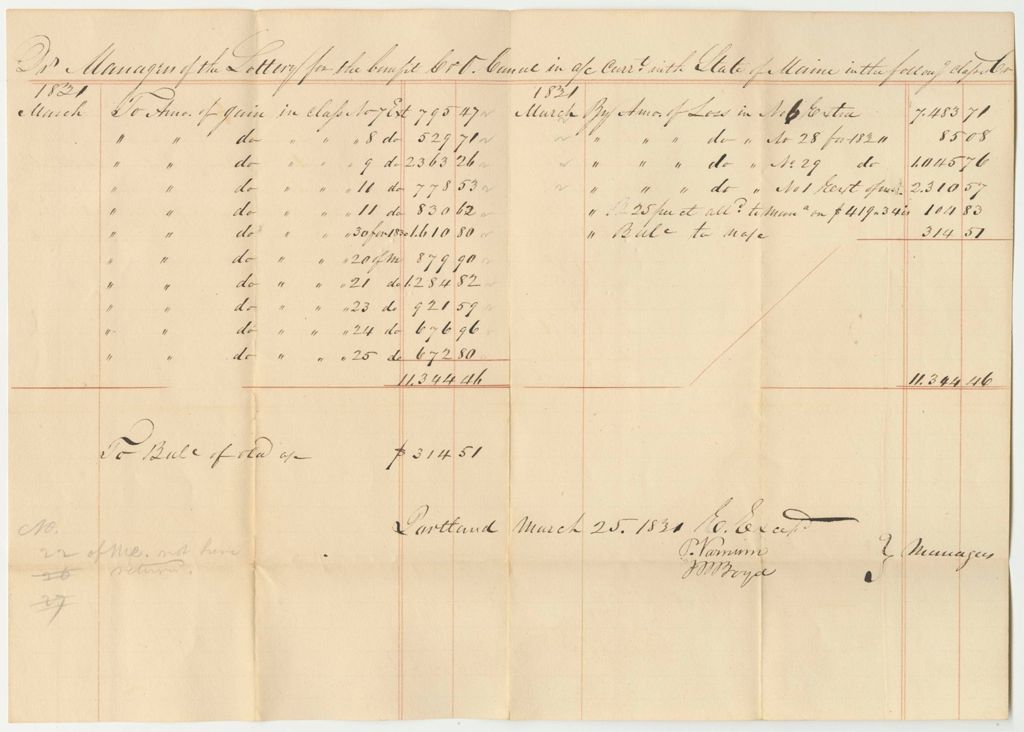 Dr Managers of the Lottery for the benefit C & O. Canal in a/c Currt with State of Maine in the followg classes Cr
1831
March To Amo. of gain in class No 7 Ext 795 47
" " do " " " 8 do 529 71
" " do " " " 9 do 2.363 26
" " do " " " 10 do 778 53
" " do " " " 11 do 830 62
" " do " " " 30 for 1830 1.610 80
" " do " " " 20 of M 879 90
" " do " " " 21 do 1.284 82
" " do " " " 23 do 921 59
" " do " " " 24 do 676 96
" " do " " " 25 do 672 80
11.344 46
1831
March By Amo. of Loss in No 6 Extra 7.483 71
" " " " do " No 28 for 1830 85 08
" " " " do " No 29 do 1.045 76
" " " " do " No 1 Next of 2.310 57
" 25 per ct alld to Mana on $ 104 83
" Balc to 314 51
11.344 46
To Balc of old a/c $ 314 51
Portland March 25. 1831
P. Varnum
Boyd
Managers
No.
22 of Me. not here
26 return.
27